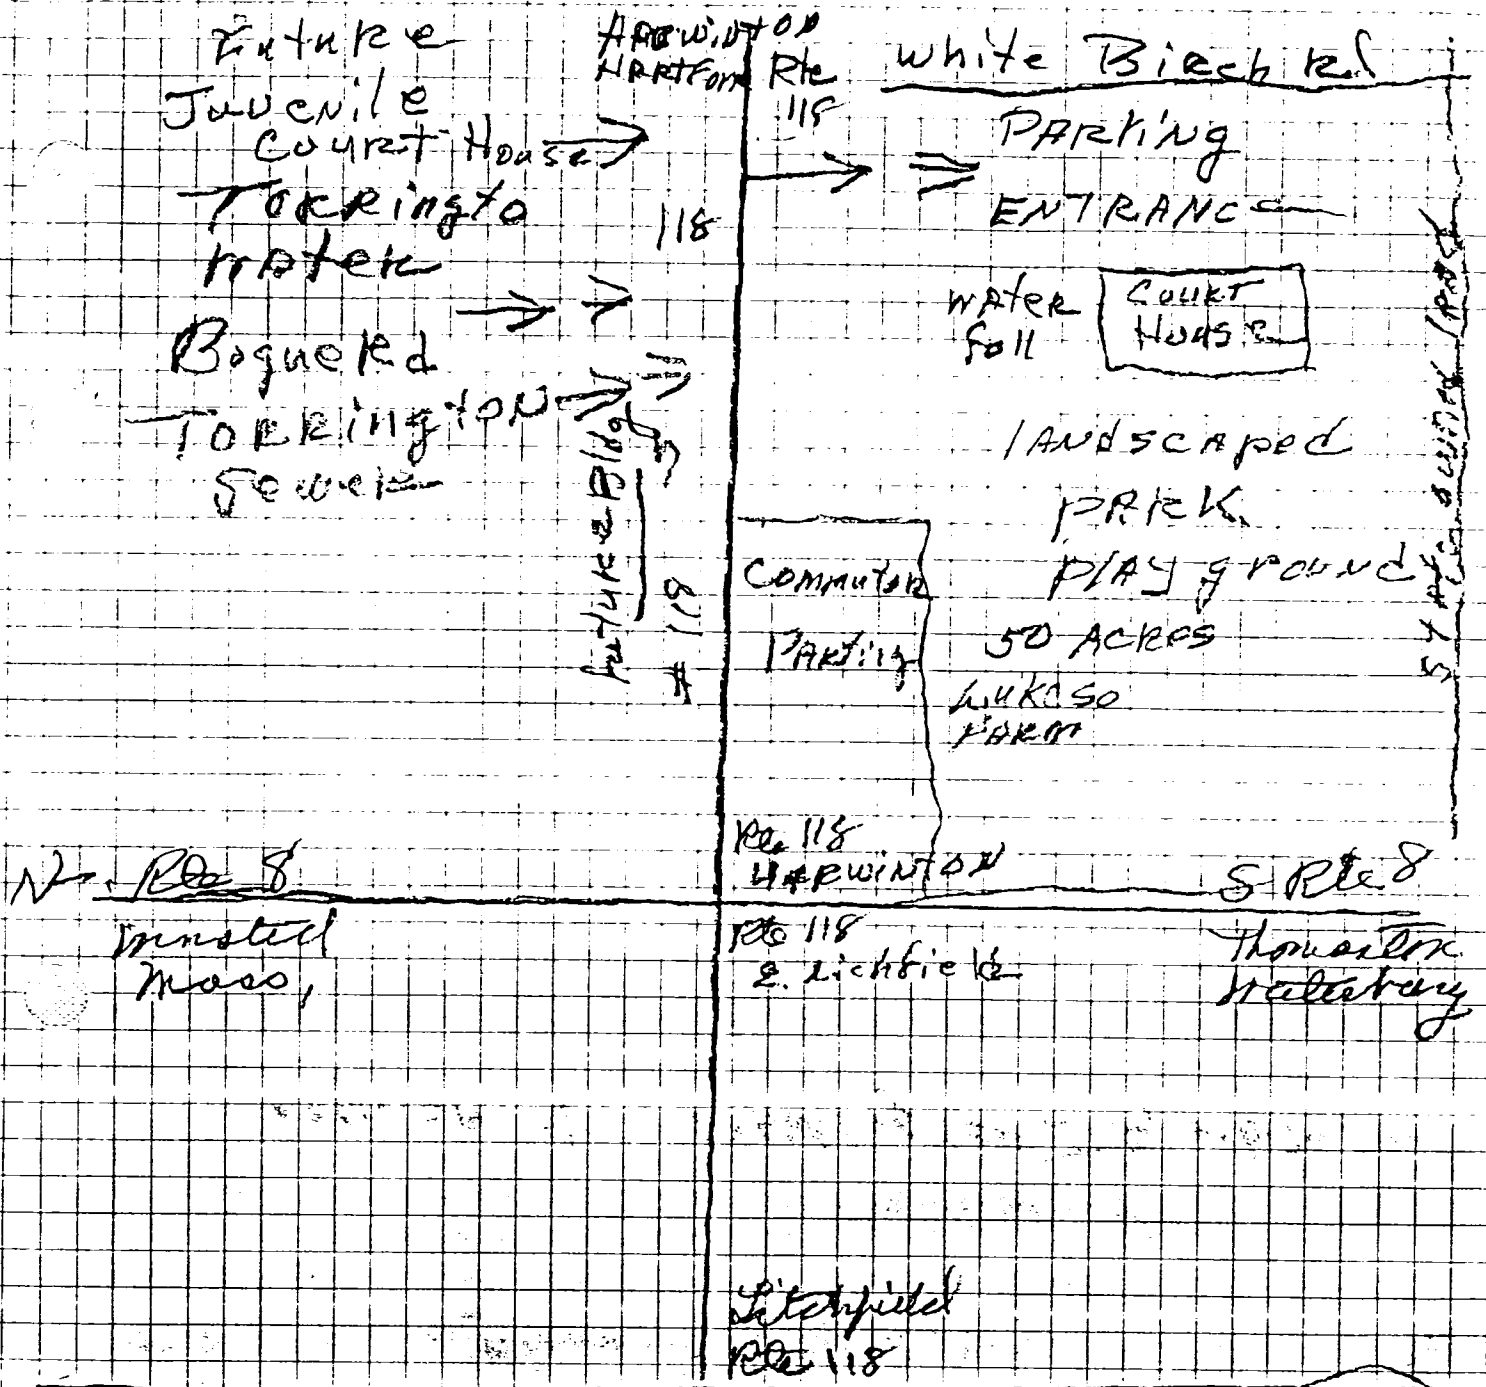 Future
Juvenile
Court House
Torringto
water
Bogue Rd
Torrington
Sewer
HARWINTON
HARTFORD Rte
118
118
future Bldg
# 118
White Birch Rd
PARKING
ENTRANCE
WATER
fall
COURT
House
LANDSCAPED
PARK
PLAY ground
50 ACRES
FARM
STATE OWNED LAND
Commuter
Parking
Rte 118
HARWINTON
N Rte 8
S Rte 8
Winsted
Mass,
Rte 118
E. Lichfield
Thomaston
Waterbury
Litchfield
Rte 118